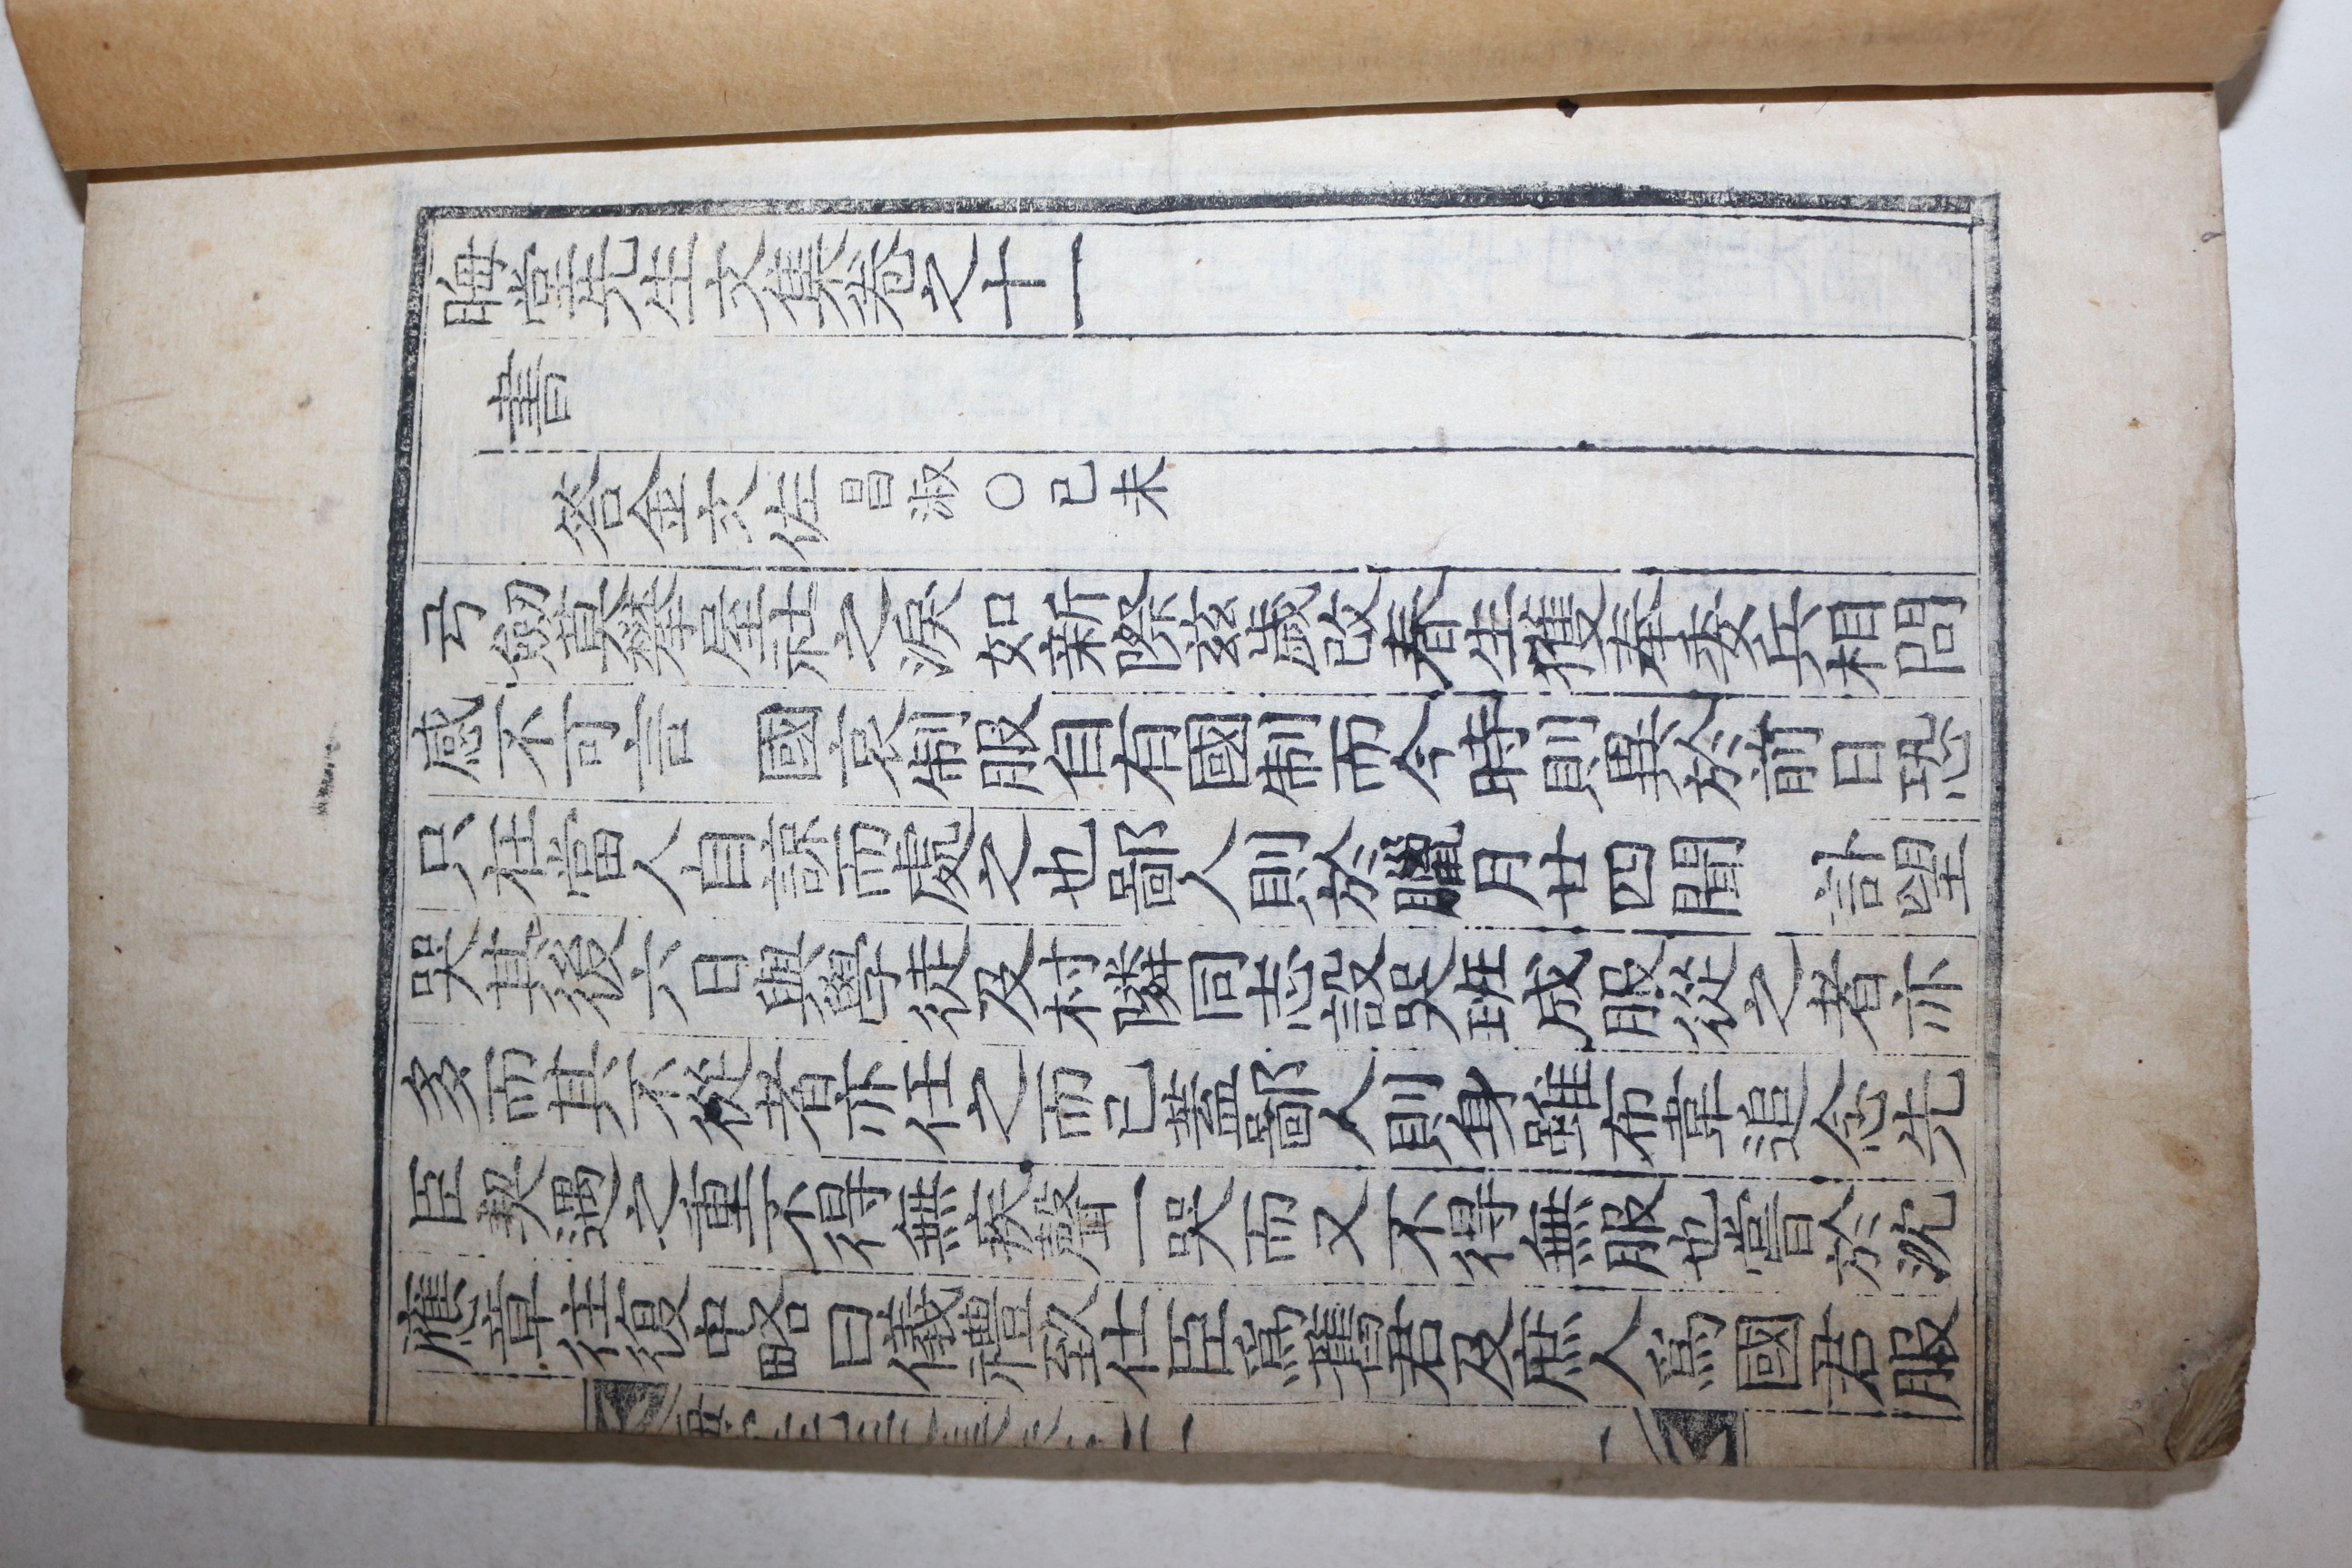 晦堂先生文集卷之十一
書
答金文佐昌淑○己未
弓劒莫攀屋社之淚如新際玆歲改春生獲奉委兵相問
感不可言　國哀制服自有國制而今時則異於前日恐
只在當人自諒而處之也鄙人則於臘月廿四聞　訃望
哭其後六日與學徒及村隣同志設哭班成服從之者亦
多而其不從者亦任之而已蓋鄙人則身雖布韋追念先
臣契遇之重不得無疾聲一哭而又不得無服也嘗於沈
應章往復中略曰儀禮致仕臣爲舊君及庶人爲國君服